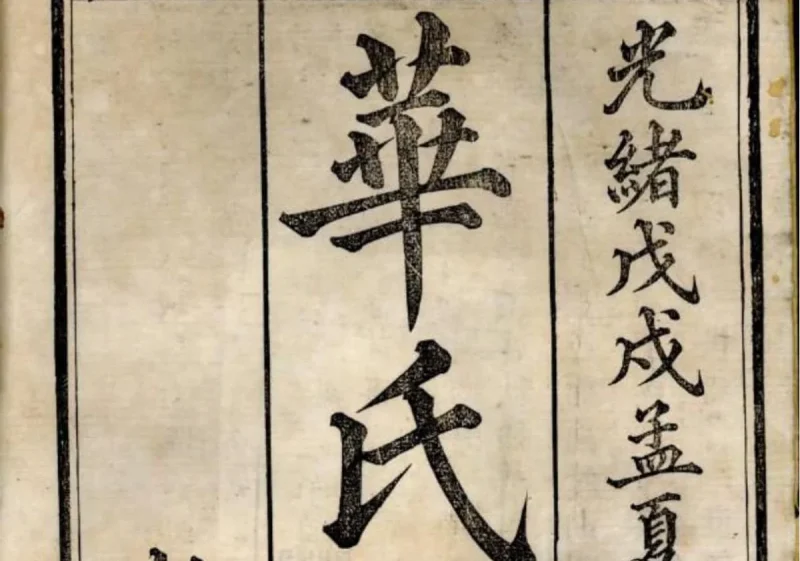 光緒戊戌孟夏
華氏